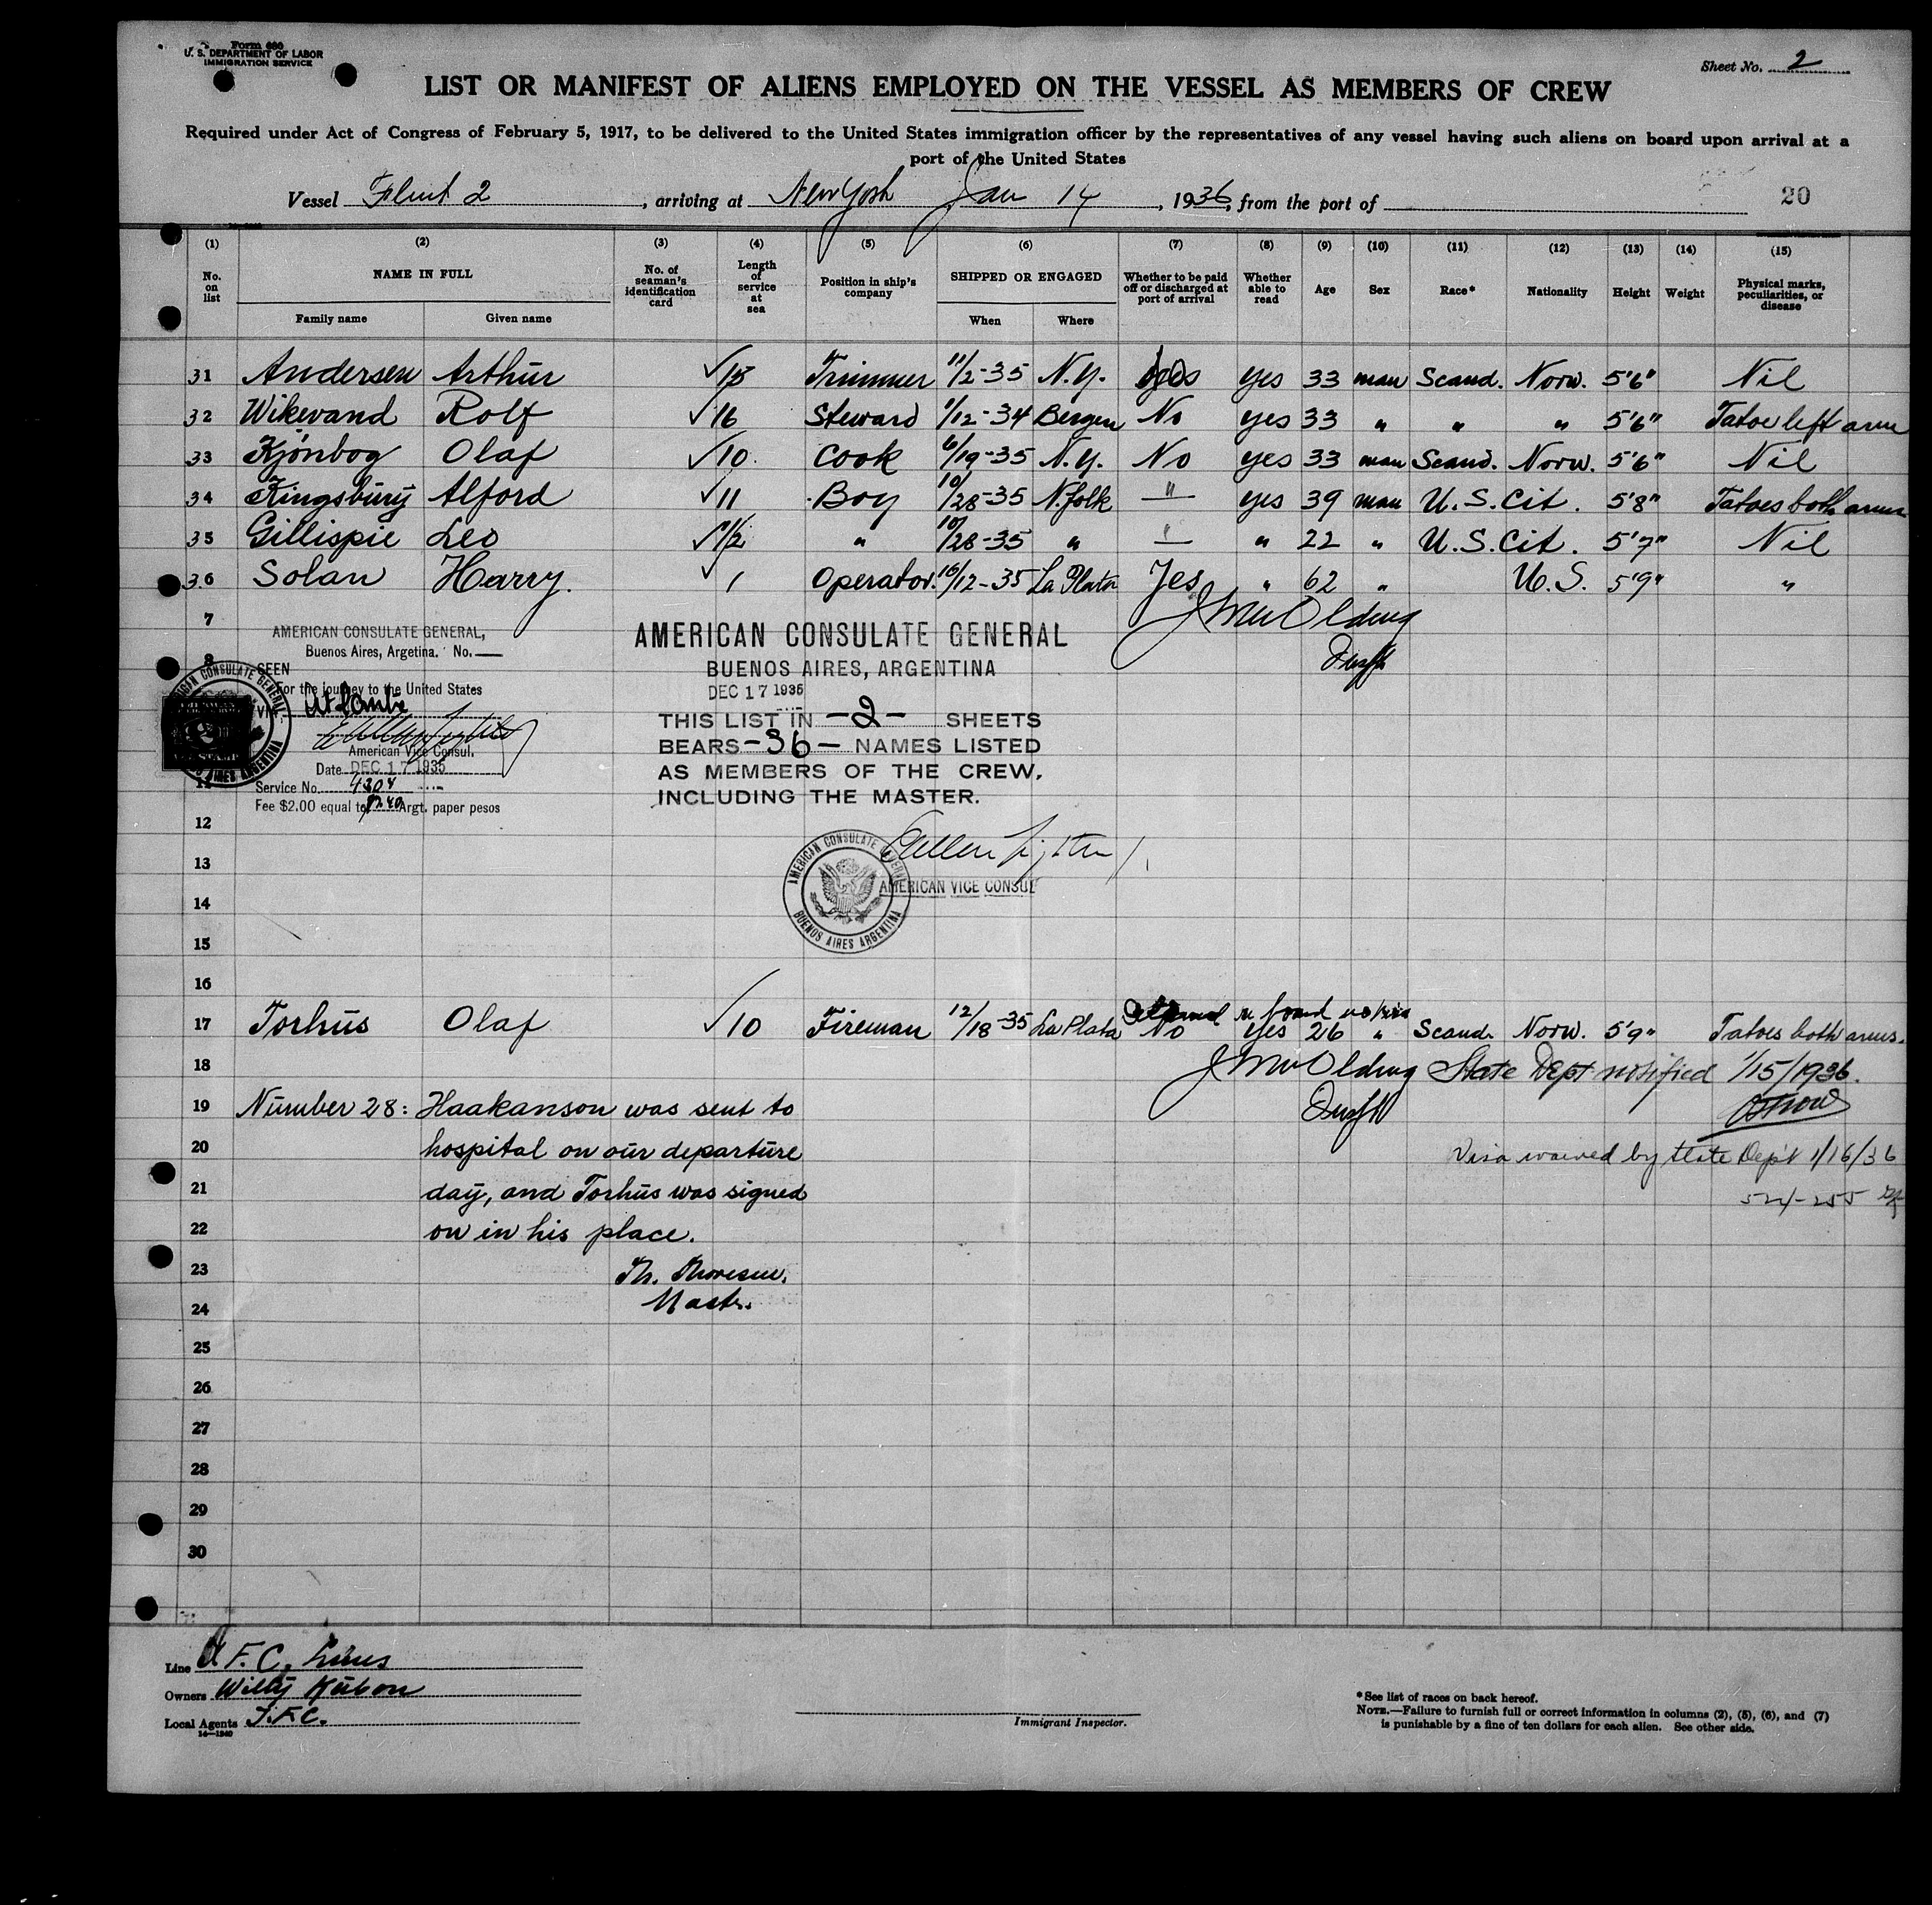 Form 680
U. S. DEPARTMENT OF LABOR
IMMIGRATION SERVICE
Sheet No. 2
LIST OR MANIFEST OF ALIENS EMPLOYED ON THE VESSEL AS MEMBERS OF CREW
Required under Act of Congress of February 5, 1917, to be delivered to the United States immigration officer by the representatives of any vessel having such aliens on board upon arrival at a
port of the United States
Vessel Flint 2, arriving at New York Jan 14, 1936, from the port of
20
(1) (2) (3) (4) (5) (6) (7) (8) (9) (10) (11) (12) (13) (14) (15)
No. on list NAME IN FULL No. of seaman's identification card Length of service at sea Position in ship's company SHIPPED OR ENGAGED Whether to be paid off or discharged at port of arrival Whether able to read Age Sex Race* Nationality Height Weight Physical marks, peculiarities, or disease
Family name Given name When Where
31 Andersen Arthur √ Trimmer 11/2-35 N.Y. yes 33 man Scand. Norw. 5'6" Nil
32 Wikevand Rolf √16 Steward 1/12-34 Bergen No yes 33 " " " 5'6" Tatoe left arm
33 Kjønbog Olaf √10 Cook 6/19-35 N.Y. No yes 33 man Scand. Norw. 5'6" Nil
34 Kingsbury Alford √11 Boy 10/28-35 N.folk " yes 39 man U.S. Cit. 5'8" Tatoes both arms
35 Gillispie Leo √1/2 " 10/28-35 " " " 22 " U.S. Cit. 5'7" Nil
36 Solan Harry. √1 Operator. 10/12-35 La Plata Yes " 62 " U.S. 5'9" "
7
AMERICAN CONSULATE GENERAL,
Buenos Aires, Argetina. No.
8
SEEN
For the journey to the United States
Atlantic
American Vice Consul.
Date DEC 17 1935
Service No. 4304
Fee $2.00 equal to Argt. paper pesos
AMERICAN CONSULATE GENERAL
BUENOS AIRES ARGENTINA
AMERICAN CONSULATE GENERAL
BUENOS AIRES, ARGENTINA
DEC 17 1935
THIS LIST IN -2- SHEETS
BEARS -36- NAMES LISTED
AS MEMBERS OF THE CREW,
INCLUDING THE MASTER.
AMERICAN VICE CONSUL
AMERICAN CONSULATE GENERAL
BUENOS AIRES ARGENTINA
11
12
13
14
15
16
on board no visa
17 Torhus Olaf √10 Fireman 12/18-35 La Plata No Yes 26 " Scand. Norw. 5'9" Tatoes both arms.
18 State Dept notified 1/15/1936.
19 Number 28: Haakanson was sent to
20 hospital on our departure
Visa waived by State Dep't 1/16/36
21 day, and Torhus was signed
22 on in his place.
23 Th. Thoresen.
24 Mast.
25
26
27
28
29
30
Line F.C. Lines
Owners
Local Agents I.F.C.
14—1240
Immigrant Inspector.
*See list of races on back hereof.
NOTE.—Failure to furnish full or correct information in columns (2), (5), (6), and (7)
is punishable by a fine of ten dollars for each alien. See other side.